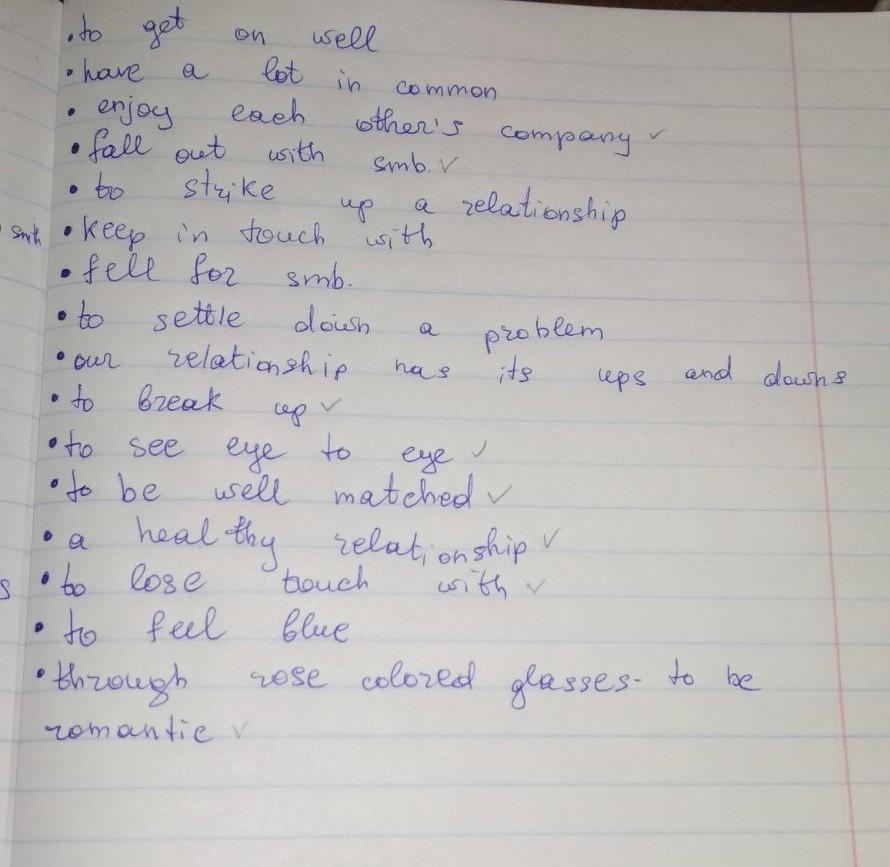 • to get on well
• have a lot in common
• enjoy each other's company ✓
• fall out with smb. ✓
• to strike up a relationship
• keep in touch with
• fell for smb.
• to settle down a problem
• our relationship has its ups and downs
• to break up ✓
• to see eye to eye ✓
• to be well matched ✓
• a healthy relationship ✓
• to lose touch with ✓
• to feel blue
• through rose colored glasses - to be
romantic ✓